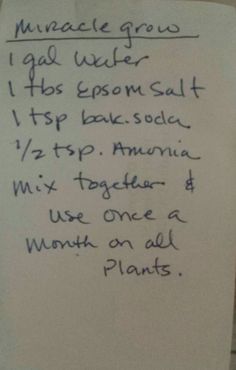 Miracle grow
1 gal water
1 tbs Epsom Salt
1 tsp bak. soda
1/2 tsp. Amonia
mix together &
use once a
month on all
Plants.